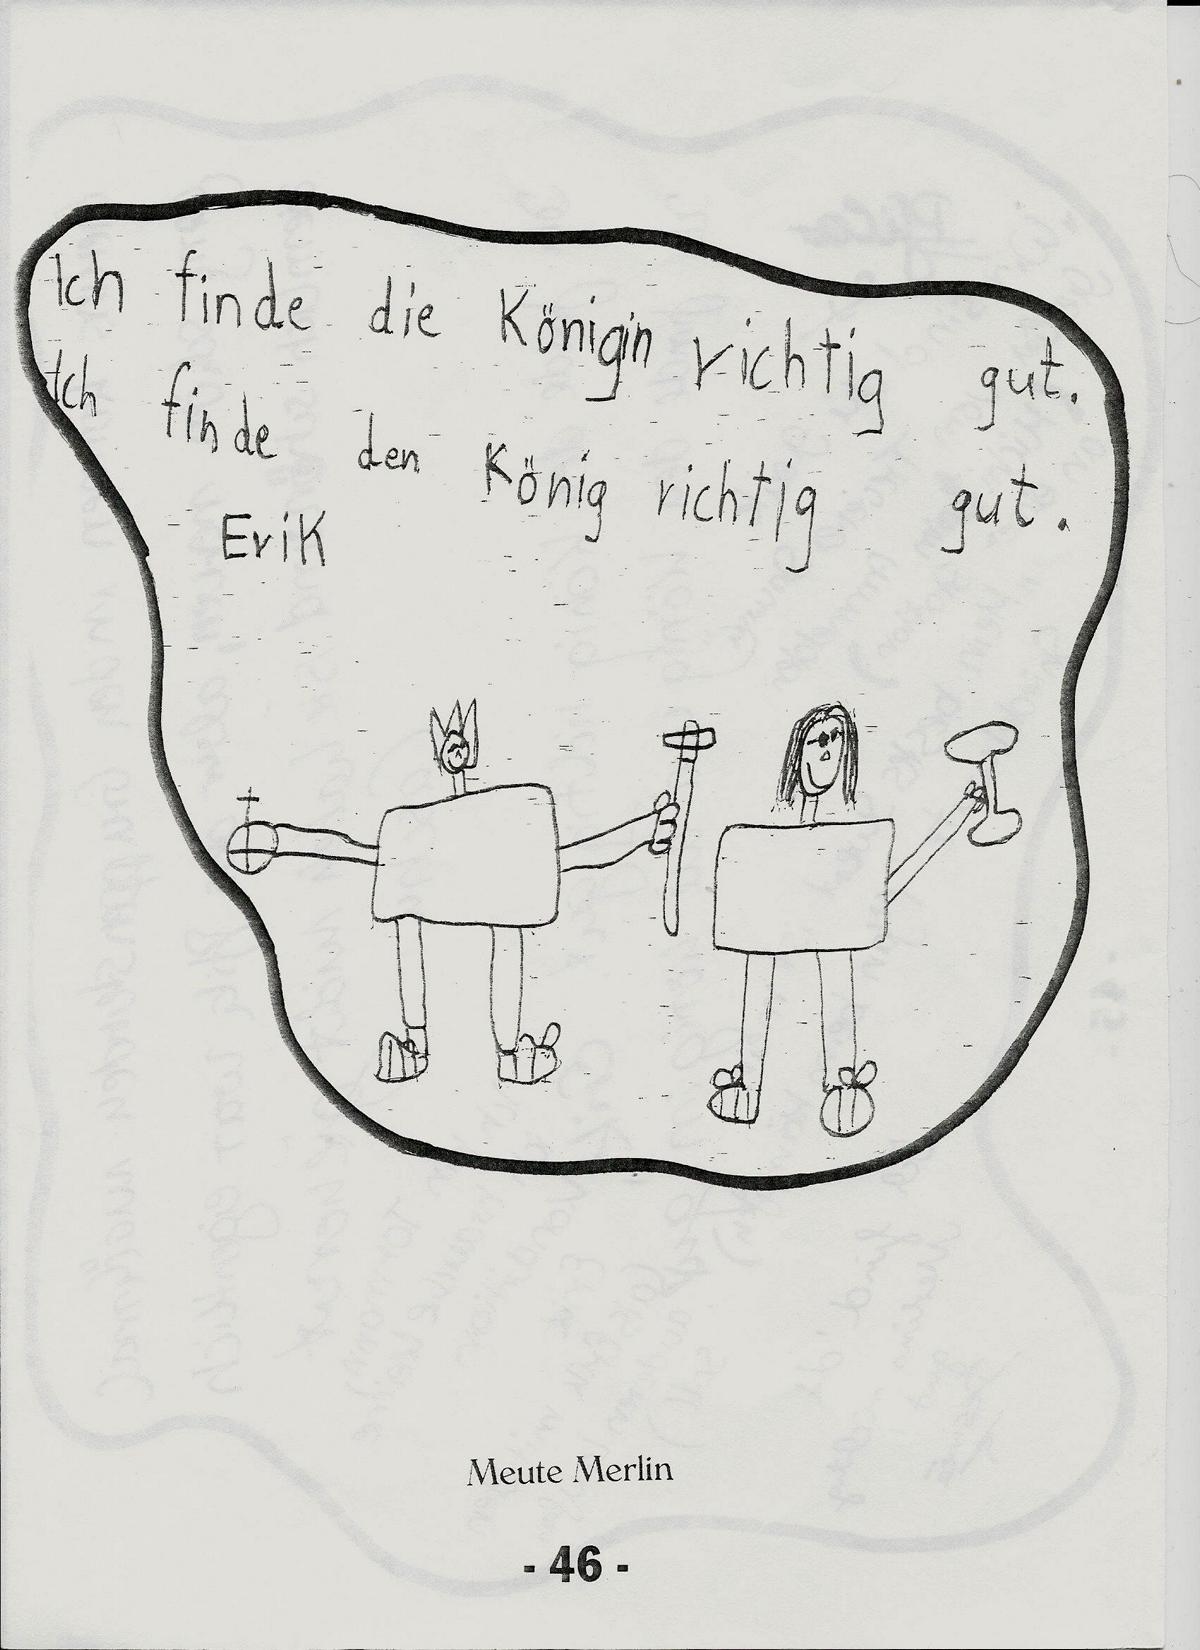 Ich finde die Königin richtig gut.
Ich finde den König richtig gut.
Erik
Meute Merlin
- 46 -